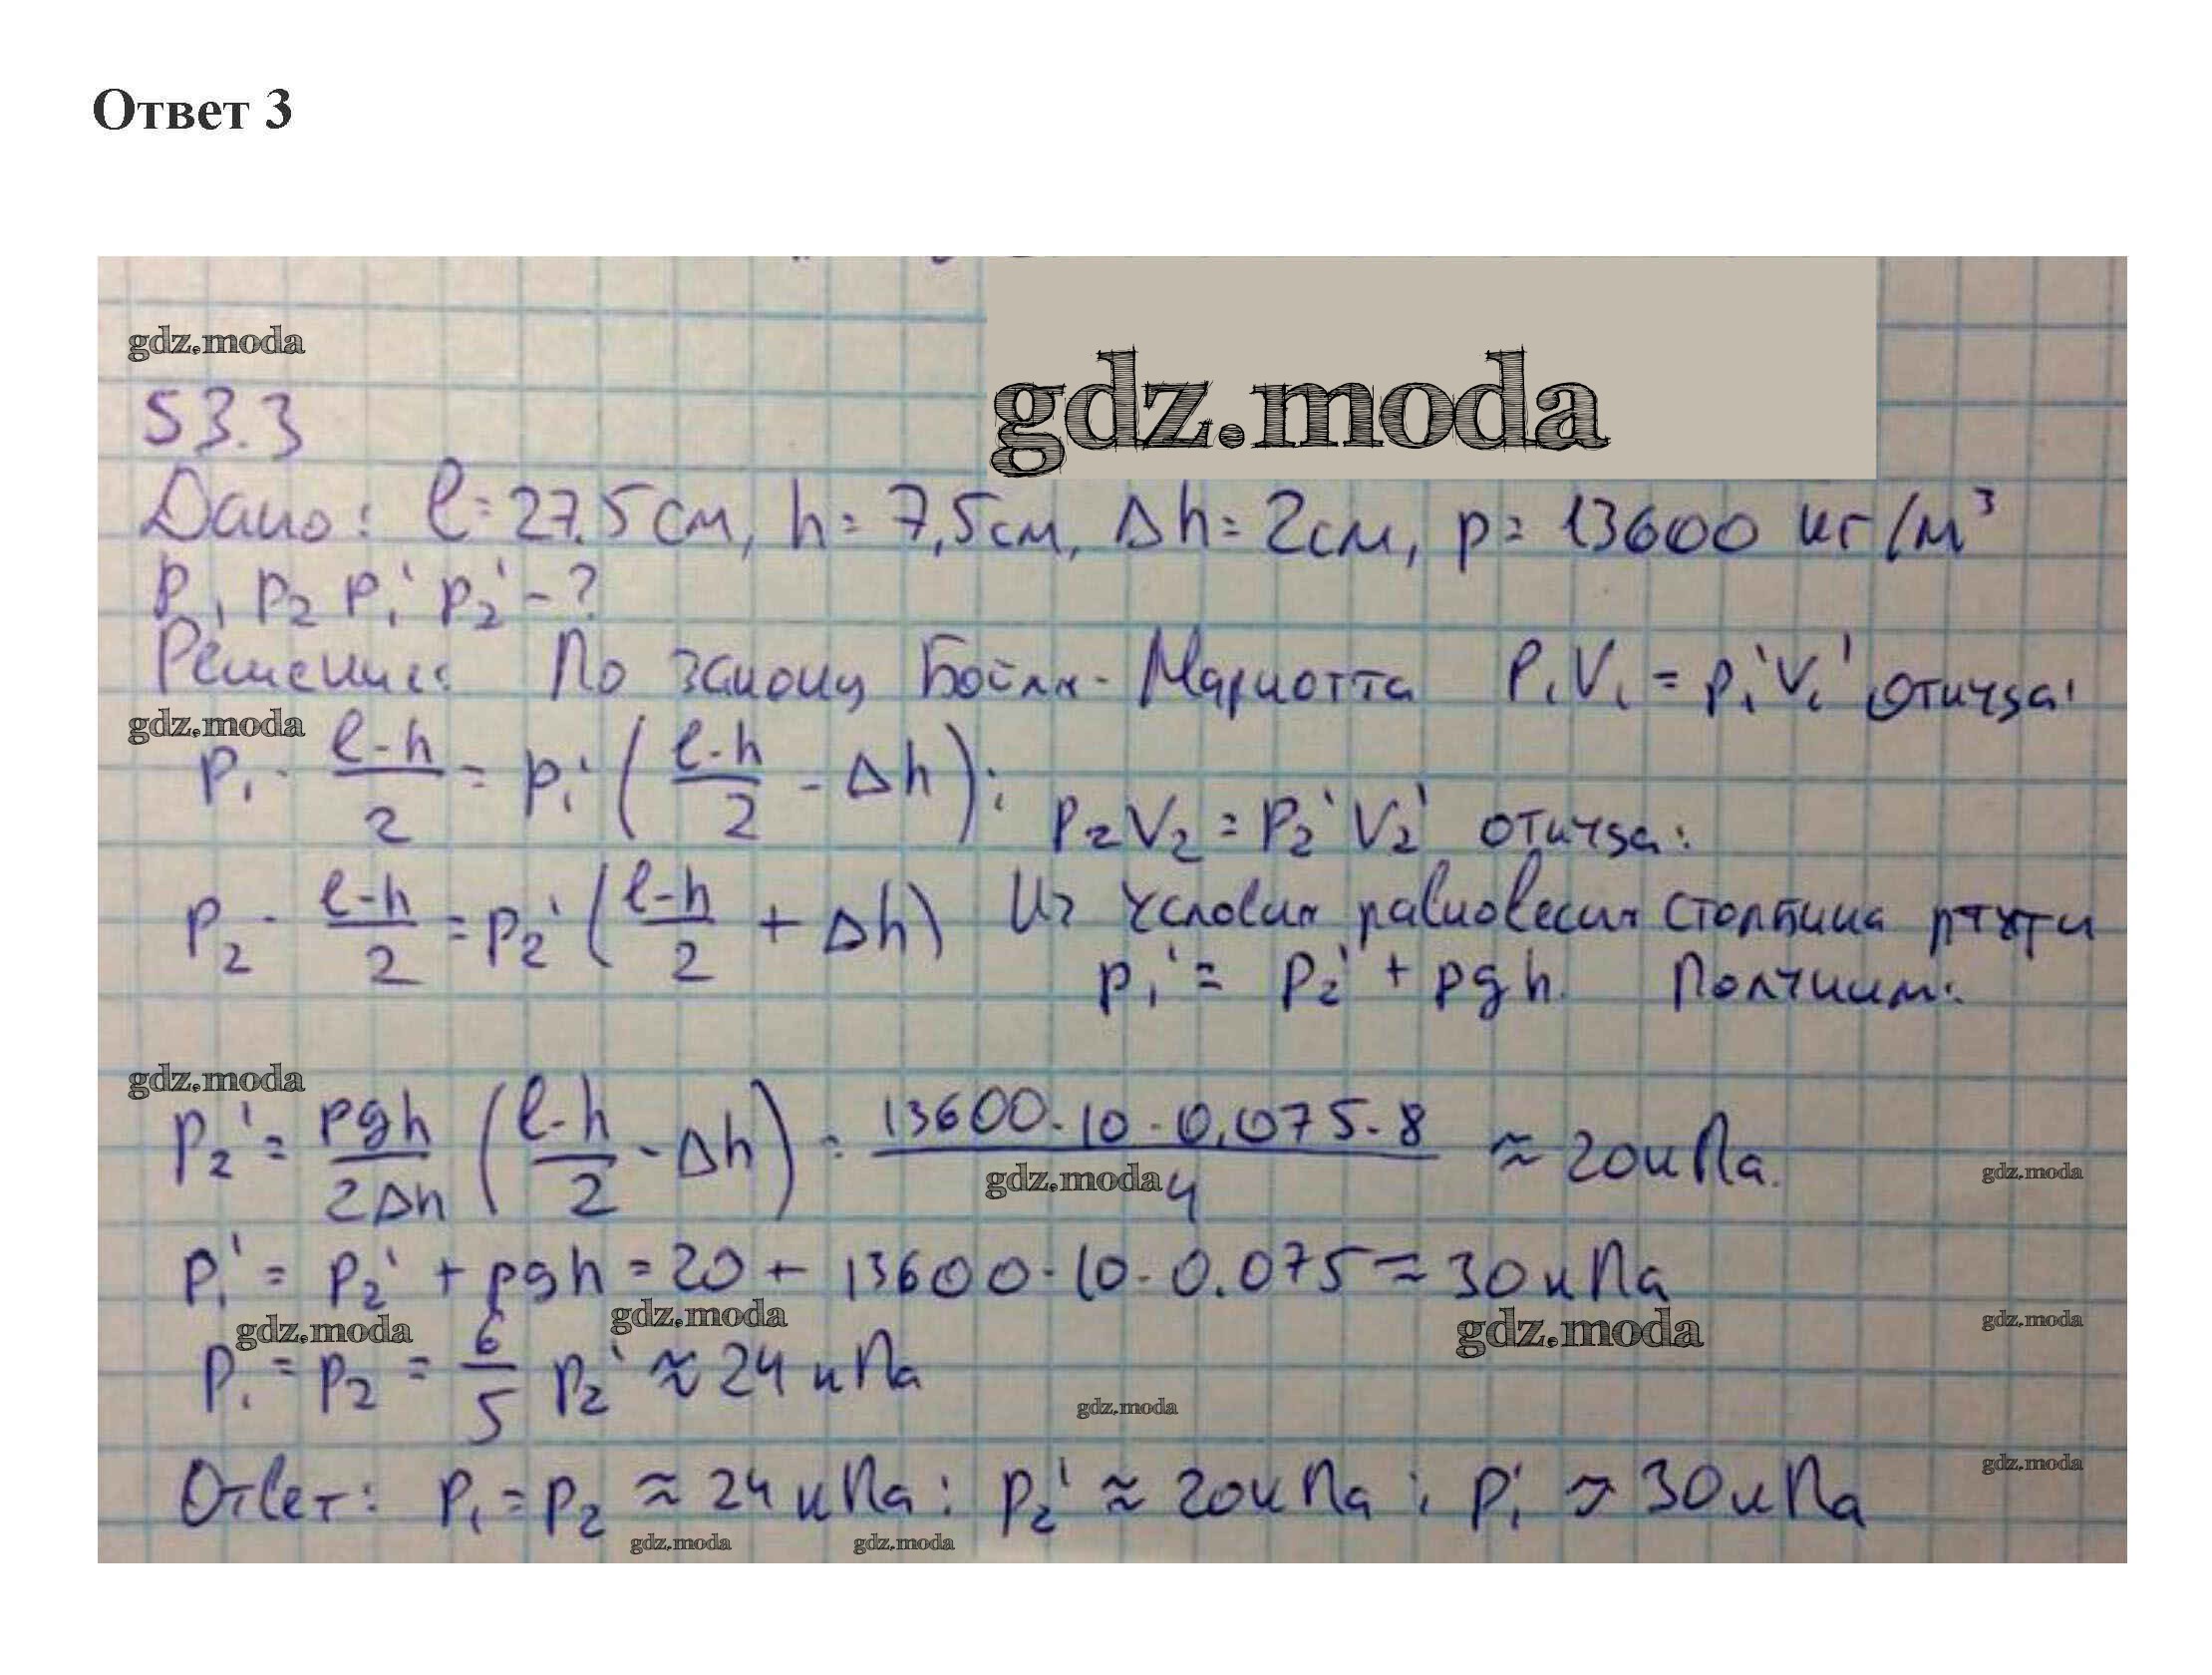 Ответ 3
gdz.moda
gdz.moda
53.3
Дано: l = 27.5 см, h = 7,5 см, Δh = 2 см, ρ = 13600 кг/м³
P₁ P₂ P₁' P₂' - ?
Решение: По закону Бойля-Мариотта P₁V₁ = P₁'V₁' откуда:
gdz.moda
P₁ · (l-h)/2 = P₁' ((l-h)/2 - Δh); P₂V₂ = P₂'V₂' откуда:
P₂ · (l-h)/2 = P₂' ((l-h)/2 + Δh) Из условия равновесия столбика ртути
P₁' = P₂' + ρgh. Получим:
gdz.moda
P₂' = ρgh/2Δh ((l-h)/2 - Δh) = 13600·10·0,075·8/4 ≈ 20 кПа.
gdz.moda gdz.moda
P₁' = P₂' + ρgh = 20 + 13600·10·0.075 ≈ 30 кПа
gdz.moda gdz.moda gdz.moda gdz.moda
P₁ = P₂ = 6/5 P₂' ≈ 24 кПа
gdz.moda
gdz.moda
Ответ: P₁ = P₂ ≈ 24 кПа; P₂' ≈ 20 кПа; P₁' ≈ 30 кПа
gdz.moda gdz.moda